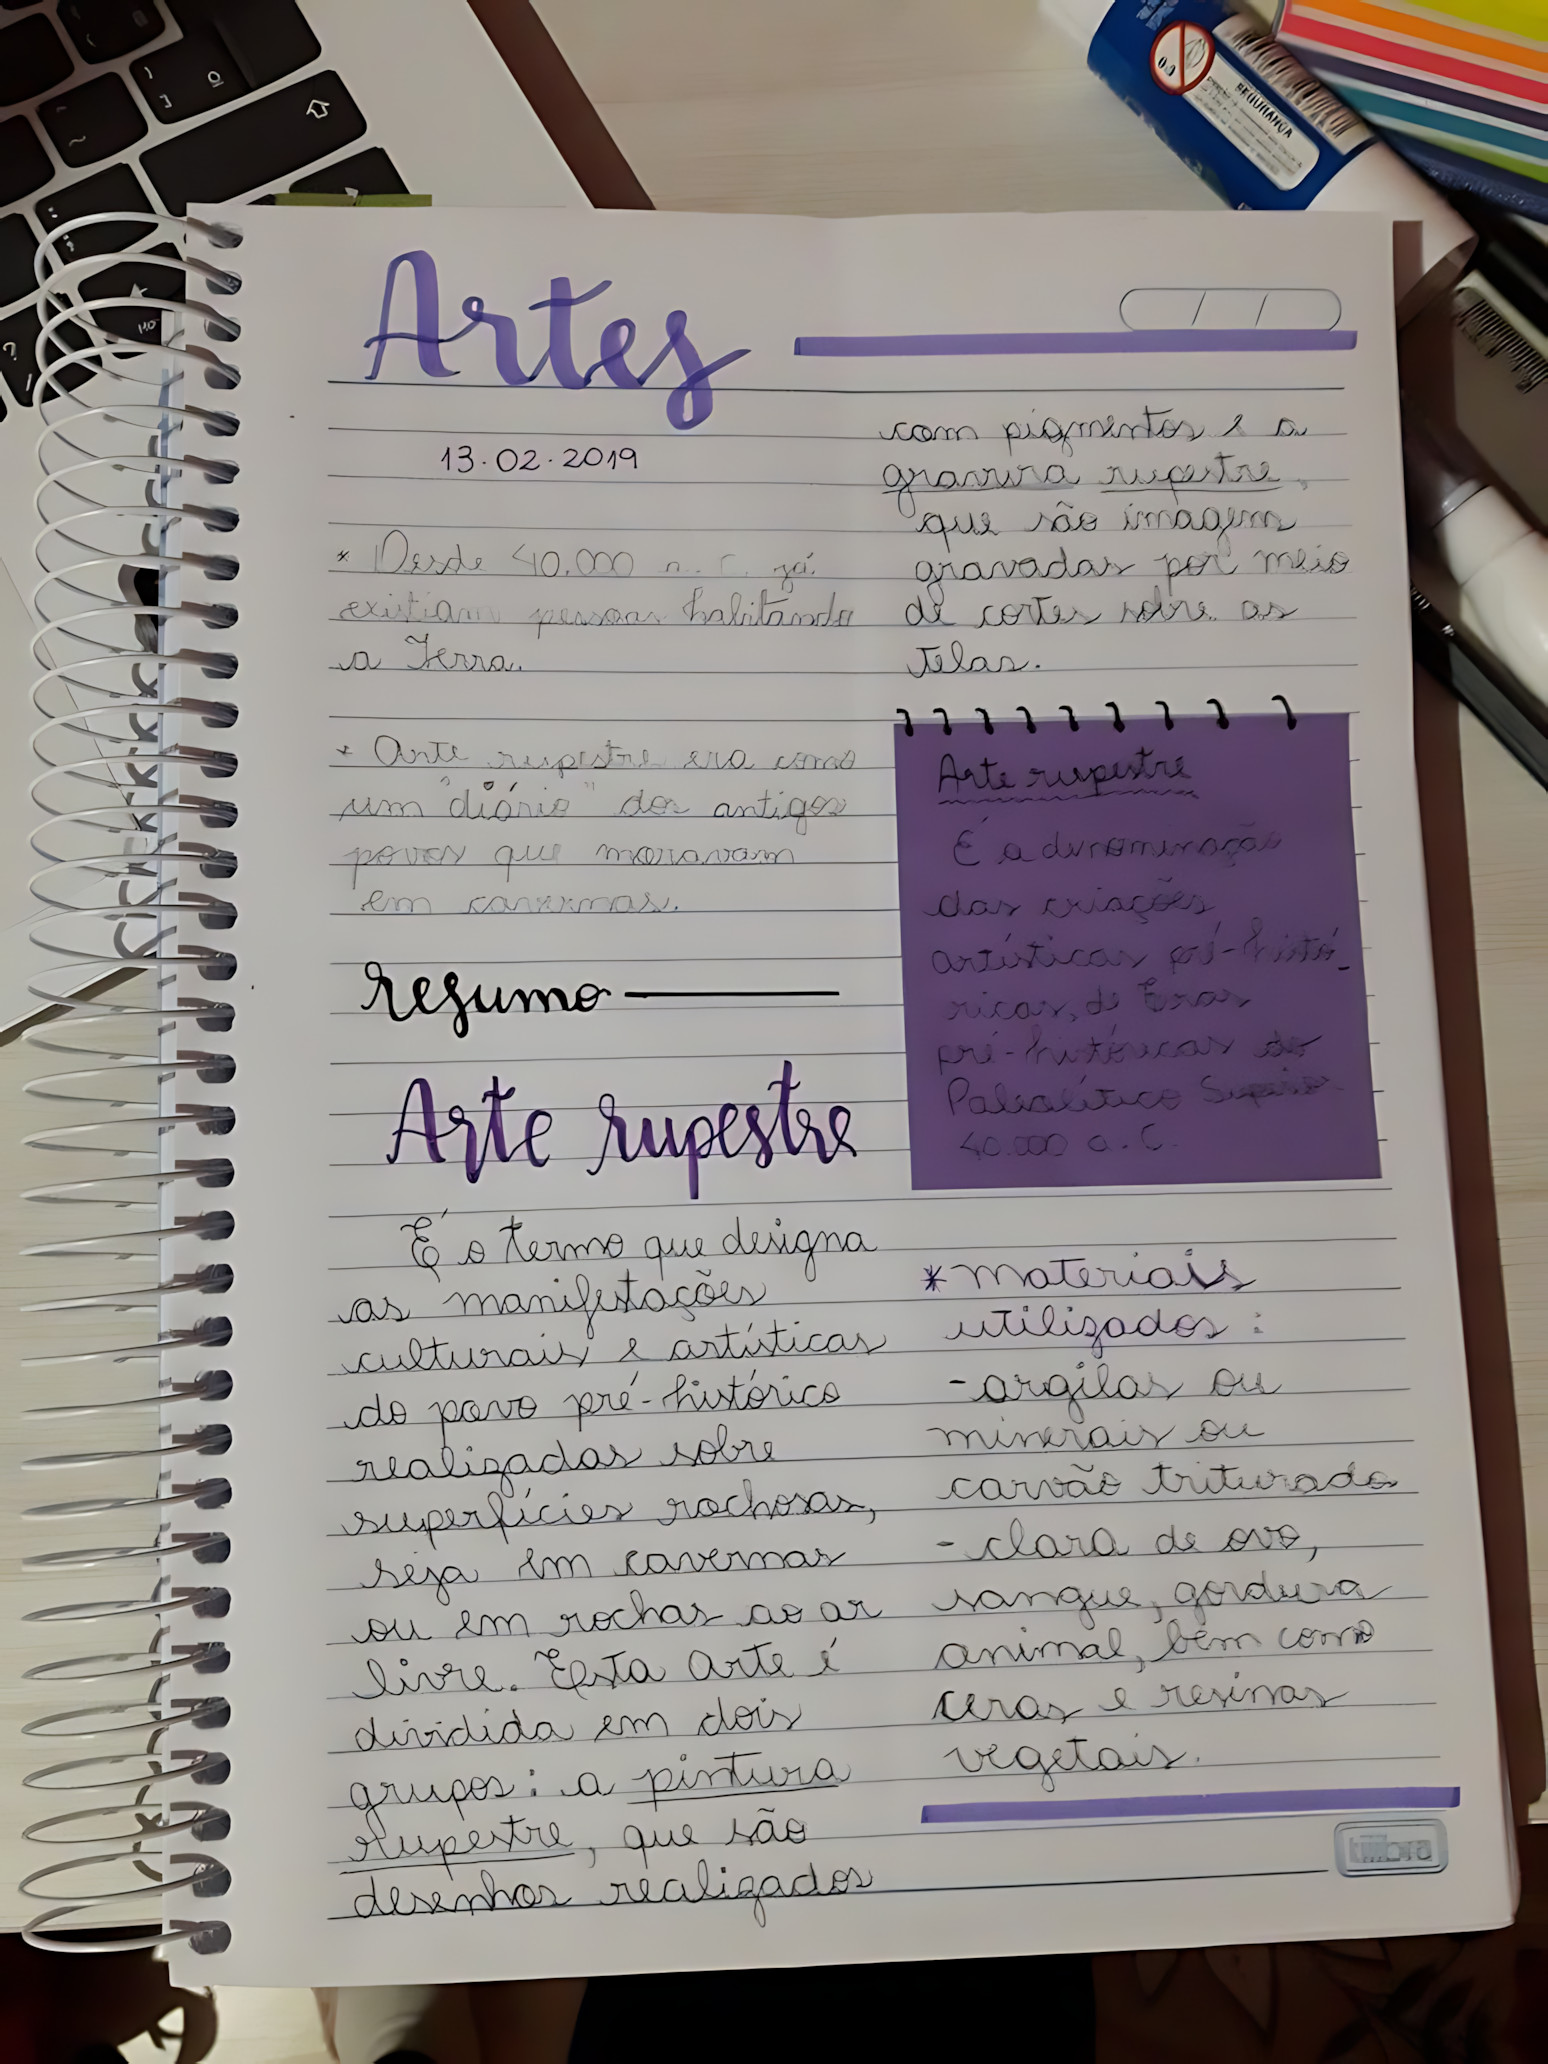 Artes
13.02.2019
* Desde 40.000 a. C. já
existiam pessoas habitando
a Terra.
* Arte rupestre era como
um "diário" dos antigos
povos que moravam
em cavernas.
resumo
Arte rupestre
É o termo que designa
as manifestações
culturais e artísticas
do povo pré-histórico
realizadas sobre
superfícies rochosas,
seja em cavernas
ou em rochas ao ar
livre. Esta arte é
dividida em dois
grupos: a pintura
rupestre, que são
desenhos realizados
com pigmentos e a
gravura rupestre,
que são imagens
gravadas por meio
de cortes sobre as
telas.
Arte rupestre
É a denominação
das criações
artísticas pré-histó-
ricas, de Eras
pré-históricas do
Paleolítico Superior
40.000 a. C.
* Materiais
utilizados:
- argilas ou
minerais ou
carvão triturado
- clara de ovo,
sangue, gordura
animal, bem como
ceras e resinas
vegetais.
tilibra
SEGURANÇA